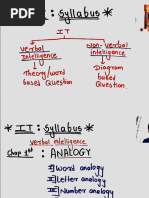 : Syllabus *
IT
Verbal Intelligence
Non-Verbal intelligence
Theory/word based Question
Diagram based Question
* IT : Syllabus *
Verbal intelligence
Chap 1st : ANALOGY
I] Word analogy
II] Letter analogy
III] Number analogy